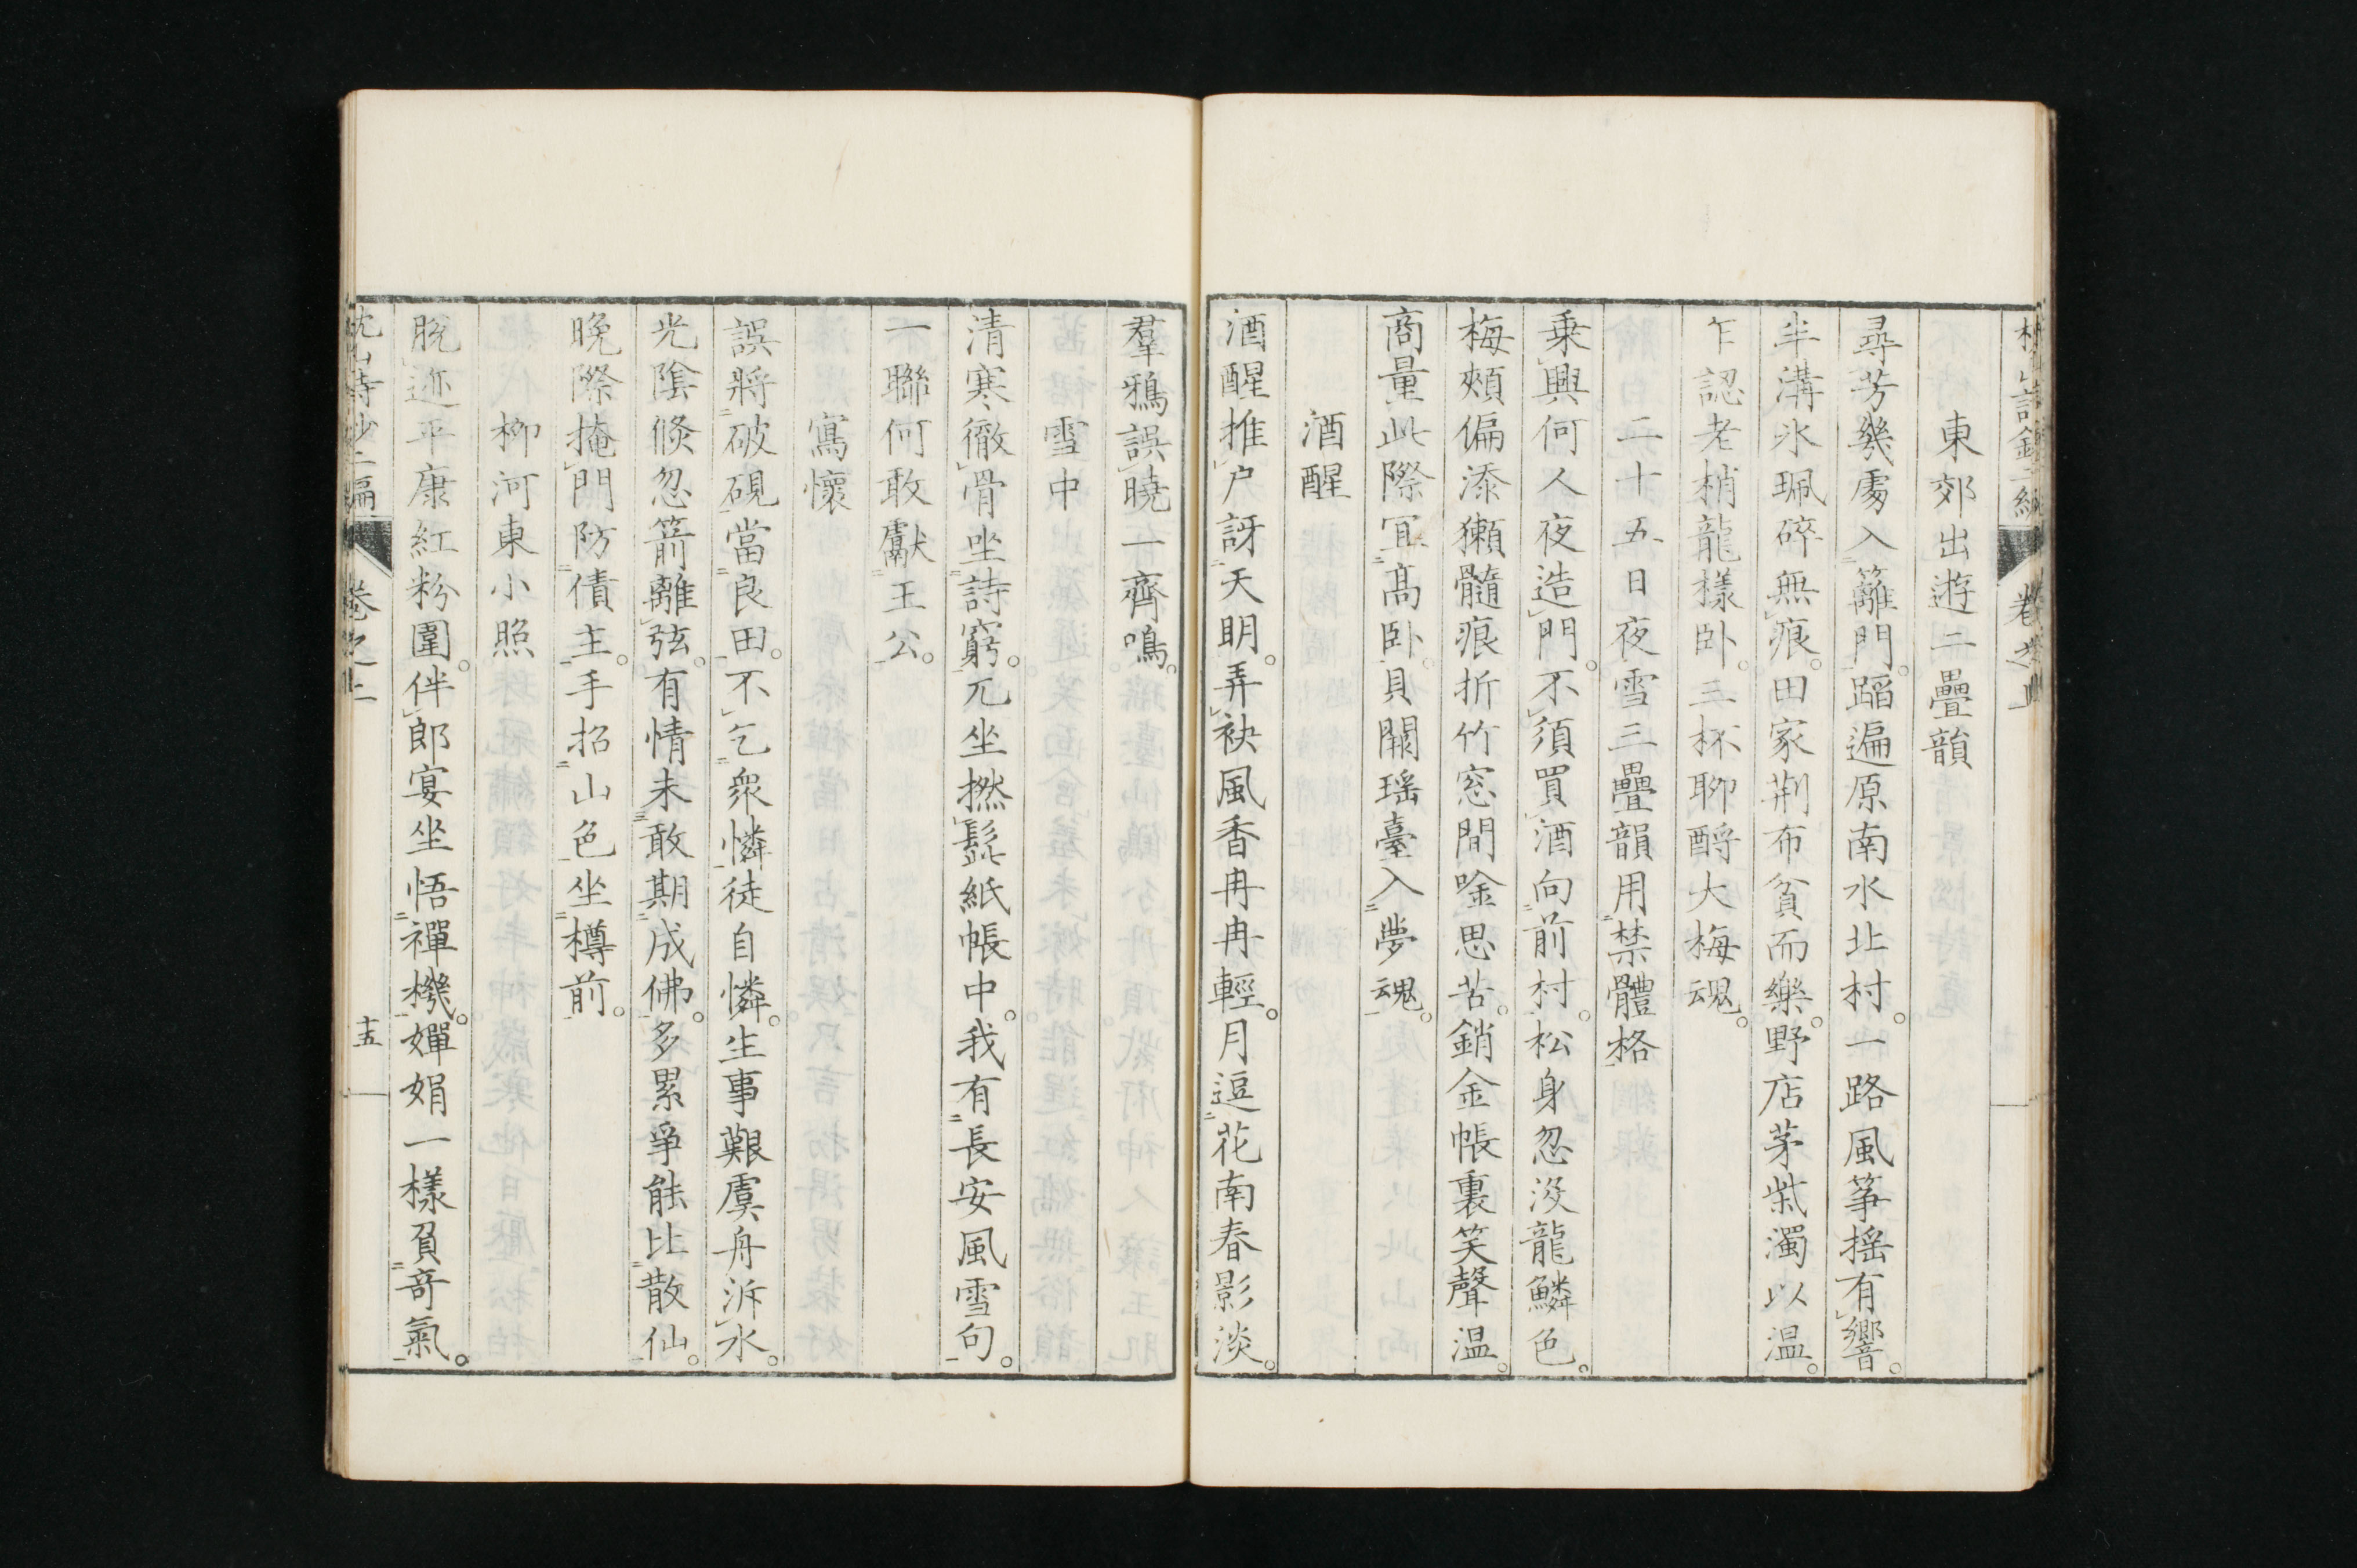 東郊出遊二疊韻
尋芳幾處入籬門。蹈遍原南水北村。一路風筝搖有響。
半溝氷珮碎無痕。田家荆布貧而樂。野店茅柴濁以温。
乍認老梢龍樣卧。三杯聊酹大梅魂。
二十五日夜雪三疊韻用禁體格
乗興何人夜造門。不須買酒向前村。松身忽没龍鱗色。
梅頰偏添獺髓痕。折竹窓間唫思苦。銷金帳裏笑聲温。
商量此際冝高卧。貝闕瑶臺入夢魂。
酒醒
酒醒推户訝天明。弄袂風香冉冉輕。月逗花南春影淡。
羣鴉誤曉一齊鳴。
雪中
清寒徹骨坐詩窮。兀坐撚髭紙帳中。我有長安風雪句。
一聯何敢獻王公。
寫懷
誤將破硯當良田。不乞衆憐徒自憐。生事艱虞舟泝水。
光陰倐忽箭離弦。有情未敢期成佛。多累爭能比散仙。
晚際掩門防債主。手招山色坐樽前。
柳河東小照
脫迹平康紅粉圍。伴郎宴坐悟禪機。嬋娟一樣負奇氣。
枕山詩鈔二編
卷之上
十五